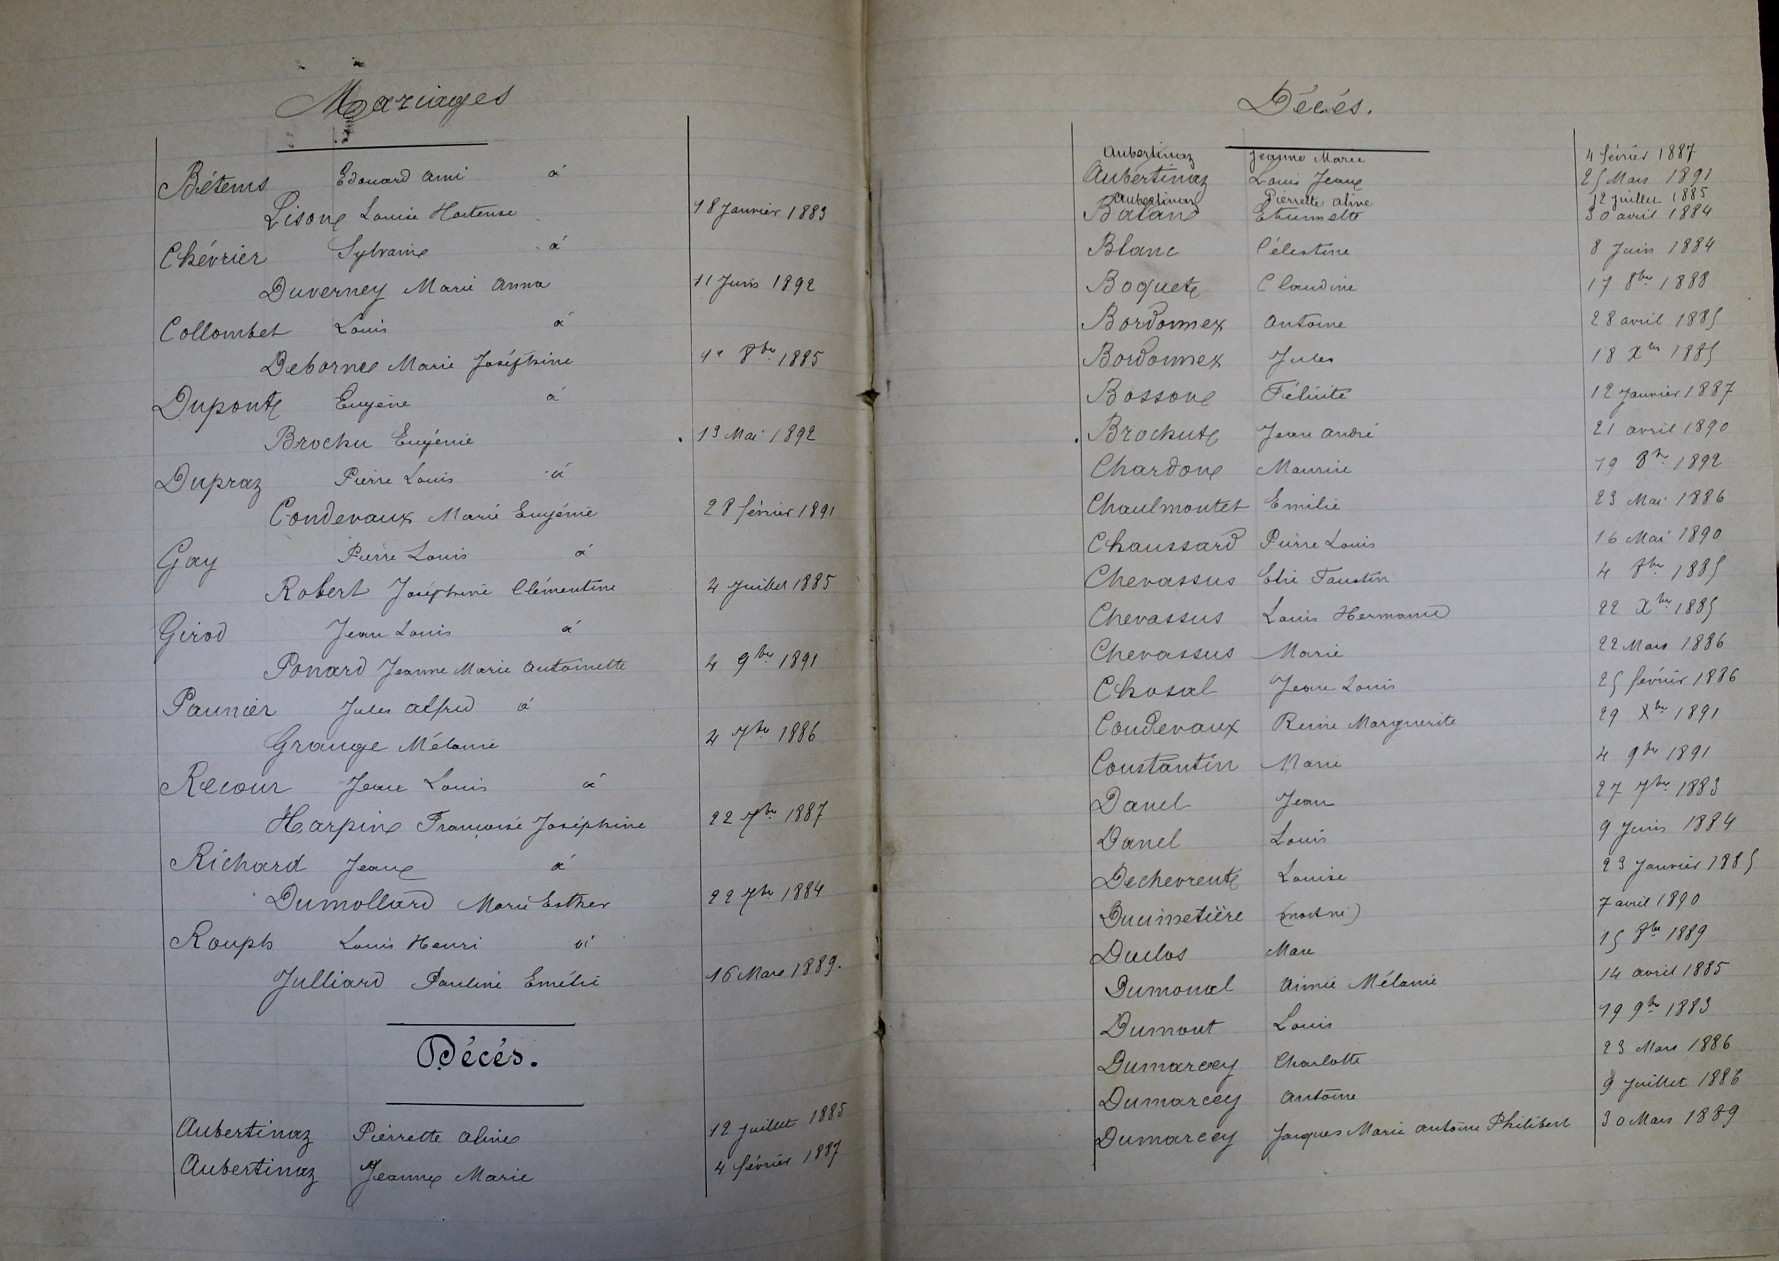 Mariages
Bétems Edouard Ami à
Lison Louise Hortense 18 Janvier 1883
Chévrier Sylvain à
Duverney Marie Anna 11 Juin 1892
Collombet Louis à
Debornes Marie Joséphine 1er 8bre 1885
Dupont Eugène à
Brochu Eugénie 13 Mai 1892
Dupraz Pierre Louis à
Condevaux Marie Eugénie 28 février 1891
Gay Pierre Louis à
Robert Joséphine Clémentine 4 Juillet 1885
Girod Jean Louis à
Ponard Jeanne Marie Antoinette 4 9bre 1891
Paunier Jules Alfred à
Grange Mélanie 4 7bre 1886
Recour Jean Louis à
Harpin Françoise Joséphine 22 7bre 1887
Richard Jean à
Dumollard Marie Esther 22 7bre 1884
Rouph Louis Henri à
Julliard Pauline Emélie 16 Mars 1889.
Décés.
Aubertinaz Pierrette Aline 12 juillet 1885
Aubertinaz Jeanne Marie 4 février 1887
Décés.
Aubertinaz Jeanne Marie 4 février 1887
Aubertinaz Louis Jean 25 Mars 1891
Aubertinaz Pierrette Aline 12 juillet 1885
Baland Etiennette 30 avril 1884
Blanc Célestine 8 Juin 1884
Boquet Claudine 17 8bre 1888
Bordonnex Antoine 28 avril 1885
Bordonnex Jules 18 Xbre 1885
Bosson Félicité 12 Janvier 1887
Brochut Jean André 21 avril 1890
Chardon Maurice 19 8bre 1892
Chaulmontet Emilie 23 Mai 1886
Chaussard Pierre Louis 16 Mai 1890
Chevassus Elie Faustin 4 8bre 1885
Chevassus Louis Hermann 22 Xbre 1885
Chevassus Marie 22 Mars 1886
Chosal Jean Louis 25 février 1886
Condevaux Reine Marguerite 29 Xbre 1891
Constantin Marie 4 9bre 1891
Danel Jean 27 7bre 1883
Danel Louis 9 Juin 1884
Dechevrent Louise 23 Janvier 1885
Ducimetière (mort né) 7 avril 1890
Duclos Marc 15 8bre 1889
Dumonal Aimée Mélanie 14 avril 1885
Dumont Louis 19 9bre 1883
Dumarcey Charlotte 23 Mars 1886
Dumarcey Antoine 9 Juillet 1886
Dumarcey Jacques Marie Antoine Philibert 30 Mars 1889